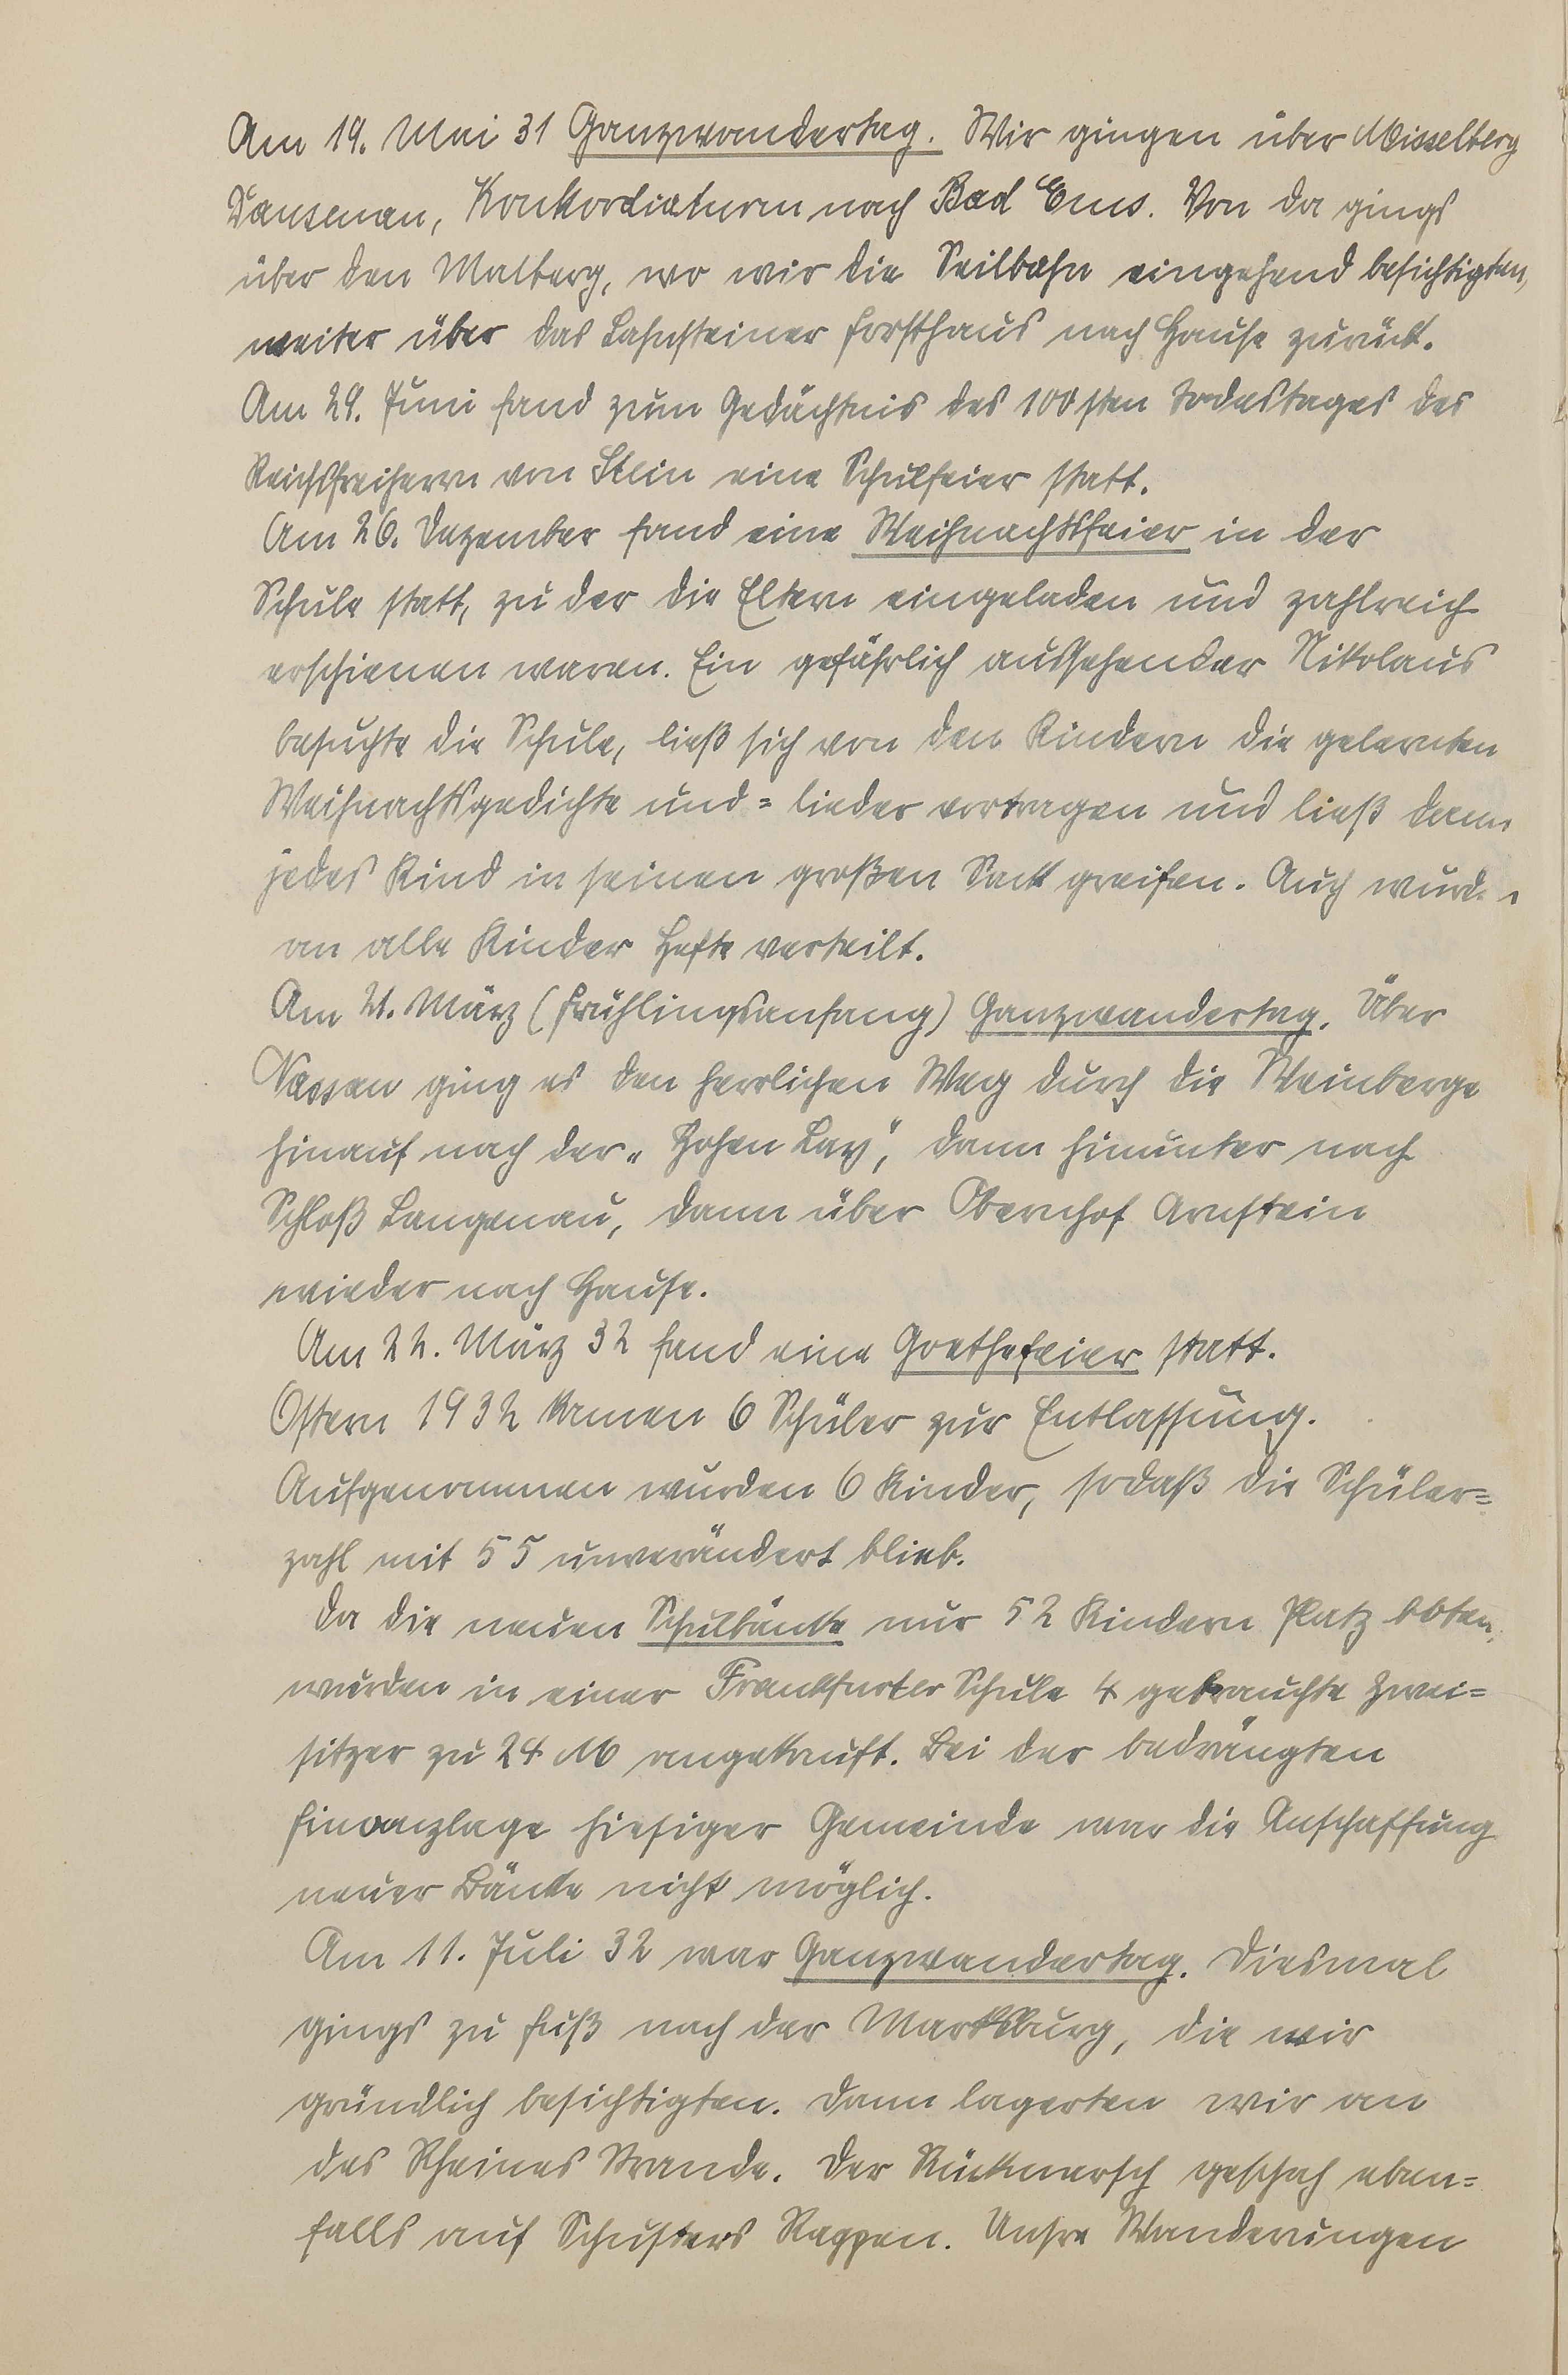 Am 19. Mai 31 Ganzwandertag. Wir gingen über Misselberg
Dausenau, Konkordiaturm nach Bad Ems. Von da gings
über den Malberg, wo wir die Seilbahn eingehend besichtigten,
weiter über das Lahnsteiner Forsthaus nach Hause zurück.
Am 29. Juni fand zum Gedächtnis des 100sten Todestages des
Reichsfreiherrn von Stein eine Schulfeier statt.
Am 20. Dezember fand eine Weihnachtsfeier in der
Schule statt, zu der die Eltern eingeladen und zahlreich
erschienen waren. Ein gefährlich aussehender Nikolaus
besuchte die Schule, ließ sich von den Kindern die gelernten
Weihnachtsgedichte und = lieder vortragen und ließ dann
jedes Kind in seinen großen Sack greifen. Auch wurden
an alle Kinder Hefte verteilt.
Am 21. März (Frühlingsanfang) Ganzwandertag. Über
Nassau ging es den herrlichen Weg durch die Weinberge
hinauf nach der „Hohen Lay", dann hinunter nach
Schloß Langenau, dann über Obernhof Arnstein
wieder nach Hause.
Am 22. März 32 fand eine Goethefeier statt.
Ostern 1932 kamen 6 Schüler zur Entlassung.
Aufgenommen wurden 6 Kinder, sodaß die Schüler=
zahl mit 55 unverändert blieb.
Da die neuen Schulbänke nur 52 Kindern Platz boten,
wurden in einer Frankfurter Schule 4 gebrauchte Zwei=
sitzer zu 24 M angekauft. Bei der bedrängten
Finanzlage hiesiger Gemeinde war die Anschaffung
neuer Bänke nicht möglich.
Am 11. Juli 32 war Ganzwandertag. Diesmal
gings zu Fuß nach der Marksburg, die wir
gründlich besichtigten. Dann lagerten wir an
des Rheines Strande. Der Rückmarsch geschah eben=
falls auf Schusters Rappen. Unsre Wanderungen